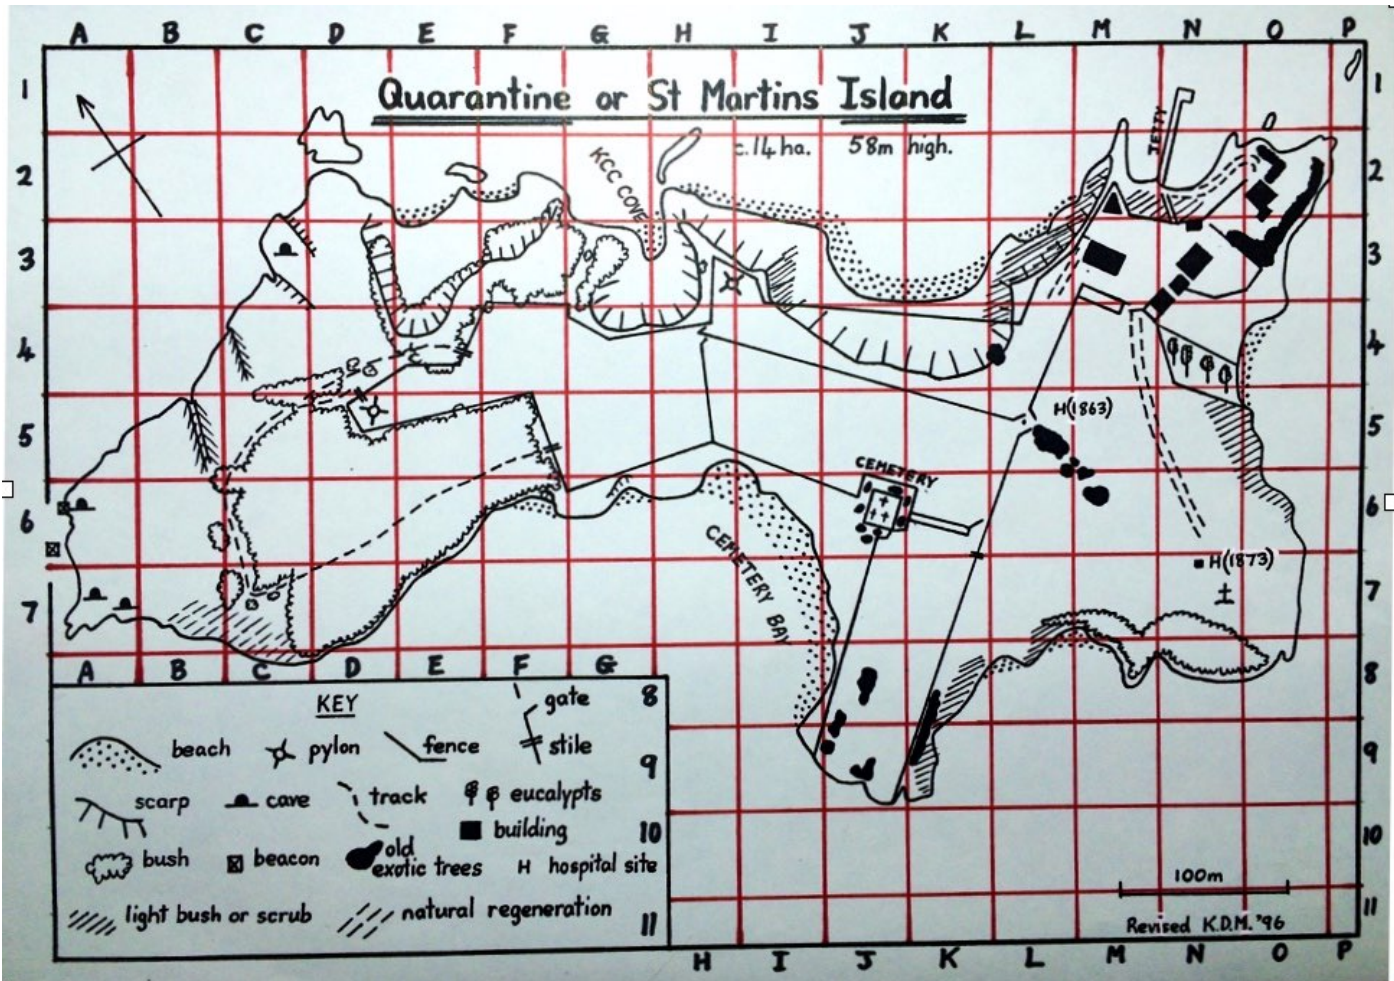 A B C D E F G H I J K L M N O P
1 1
Quarantine or St Martins Island
JETTY
c.14ha. 58m high.
2 2
KCC COVE
3 3
4 4
H(1863)
5 5
CEMETERY
6 6
CEMETERY BAY
H(1873)
7 7
A B C D E F G
8 8
KEY
gate
beach pylon fence stile
9 9
scarp cave track eucalypts
building
10 10
bush beacon old exotic trees H hospital site
light bush or scrub natural regeneration
11 11
100m
Revised K.D.M. '96
H I J K L M N O P